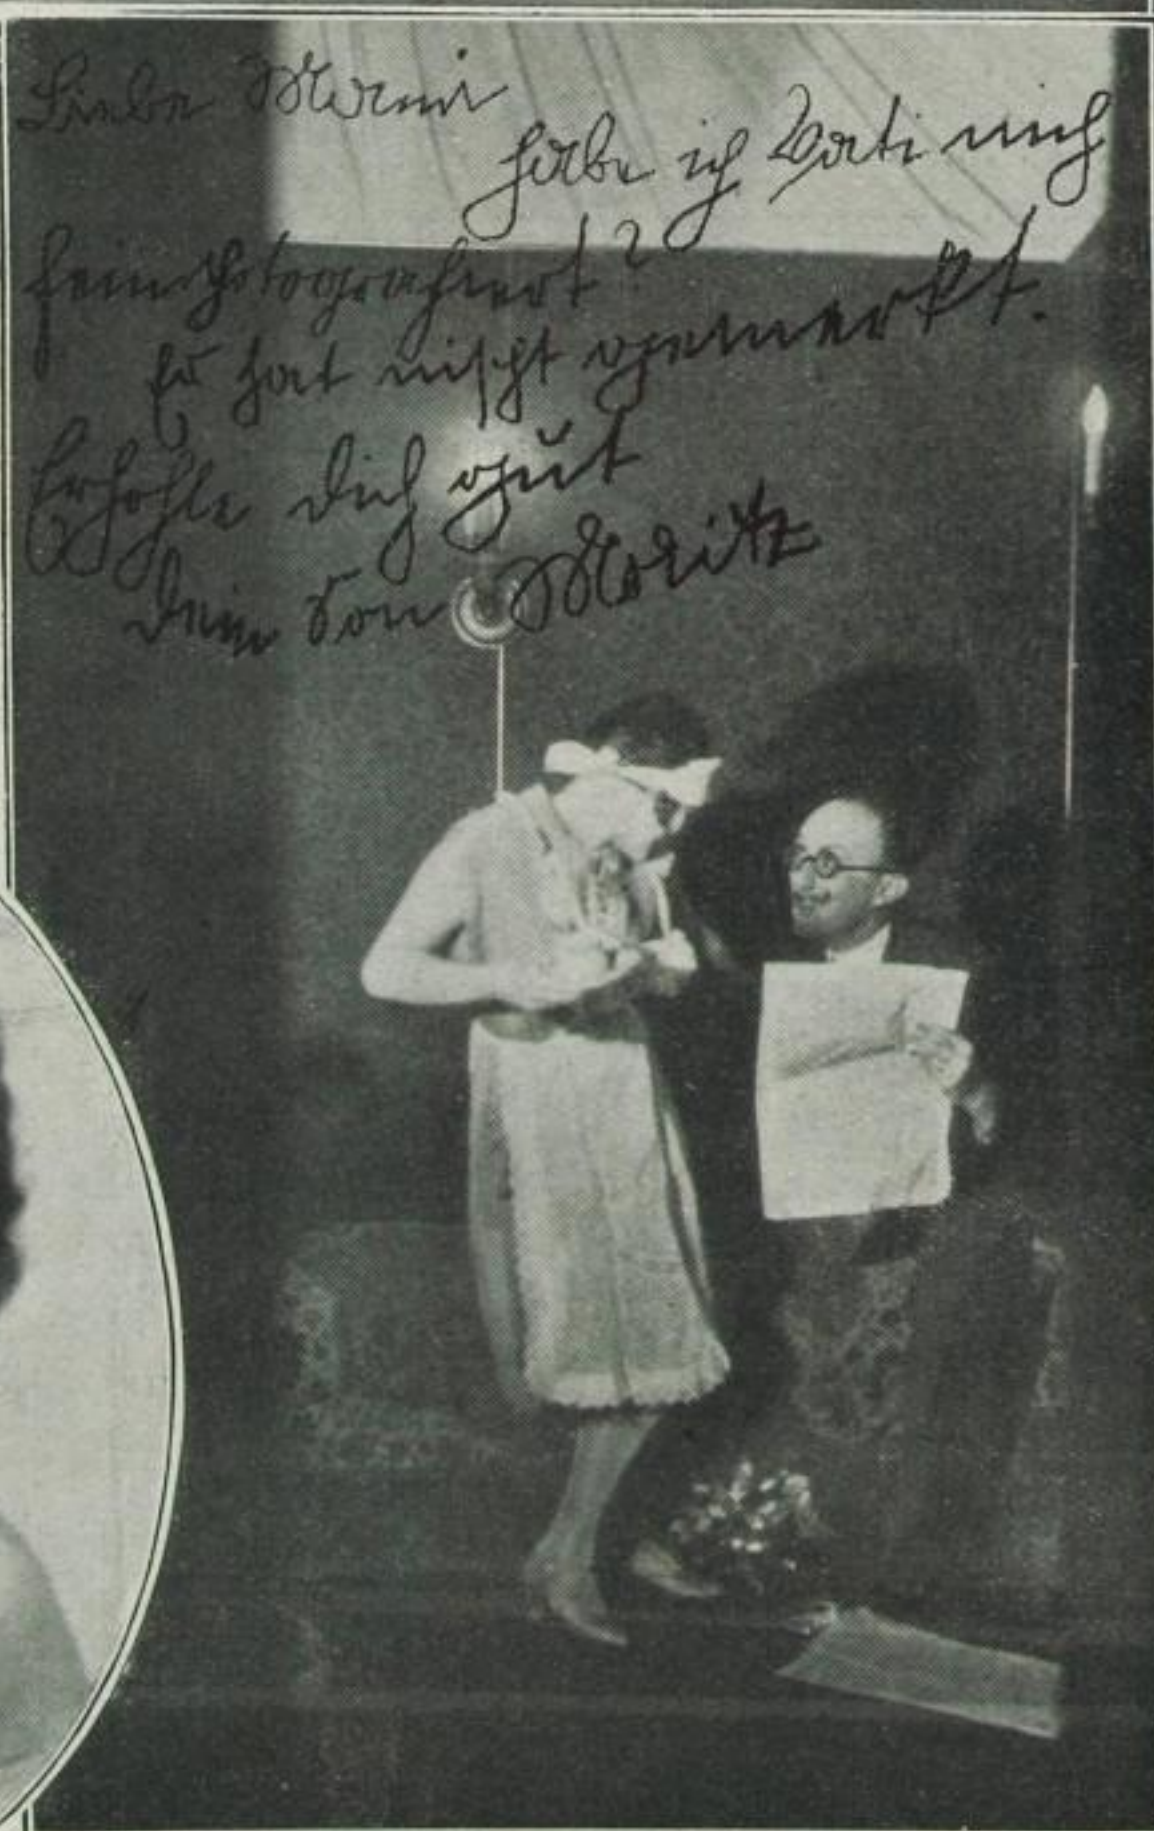 Liebe Mami
habe ich Vati nich
fein Photografiert?
Er hat nischt gemerkt.
Erhohle dich gut
Dein Son Moritz